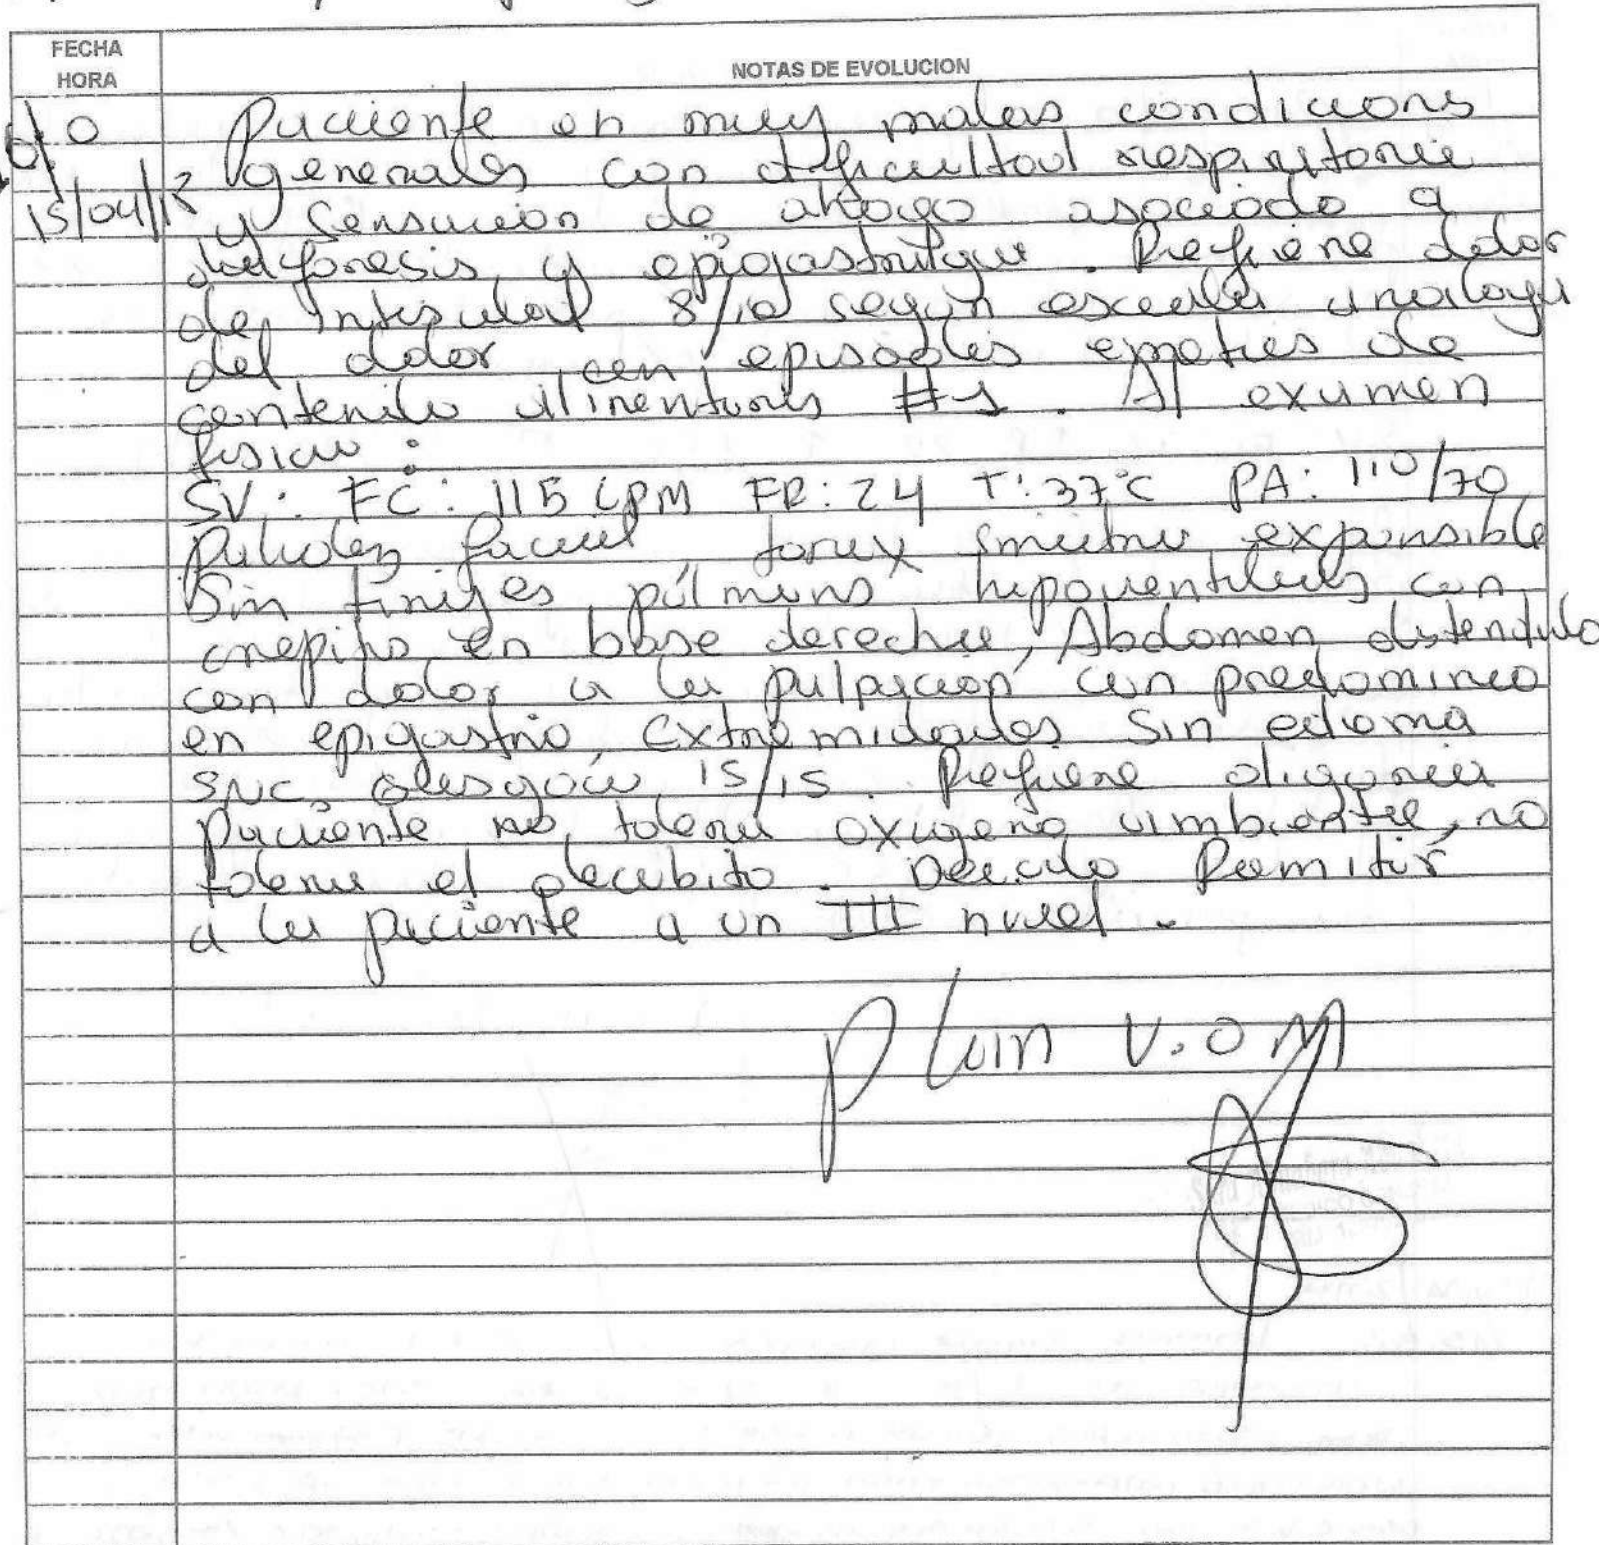 FECHA
HORA
NOTAS DE EVOLUCION
Paciente en muy malas condicions
generales con dificultad respiratoria
15/04/13 y sensacion de ahogo asociado a
diaforesis y epigastralgia. Refiere dolor
de intesidad 8/10 según escala analoga
del dolor con episodios emetics de
contenido alimentarios #1. Al examen
fisico:
SV: FC: 115 LPM FR: 24 T: 37°C PA: 110/70
Palidez facial, torax simetrico expansible
Sin tirajes, pulmons hipoventilados con
crepitos en base derecha, Abdomen distendido
con dolor a la palpación con predominio
en epigastrio, Extremidades Sin edema
SNC Glasgow 15/15. Refiere oliguria
Paciente no tolera oxigeno ambiente, no
tolera el decubito. Decido Remitir
a la paciente a un III nivel.
Plan V.O M